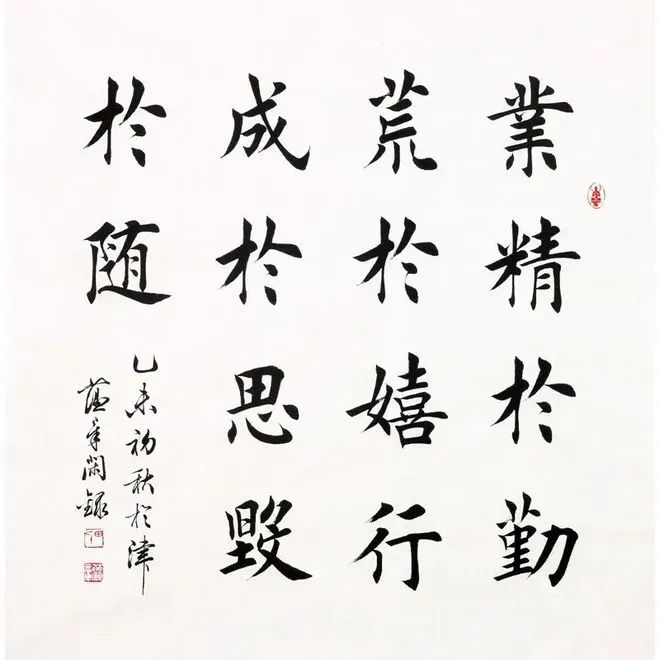 業精於勤
荒於嬉行
成於思毀
於随
乙未初秋於津
録